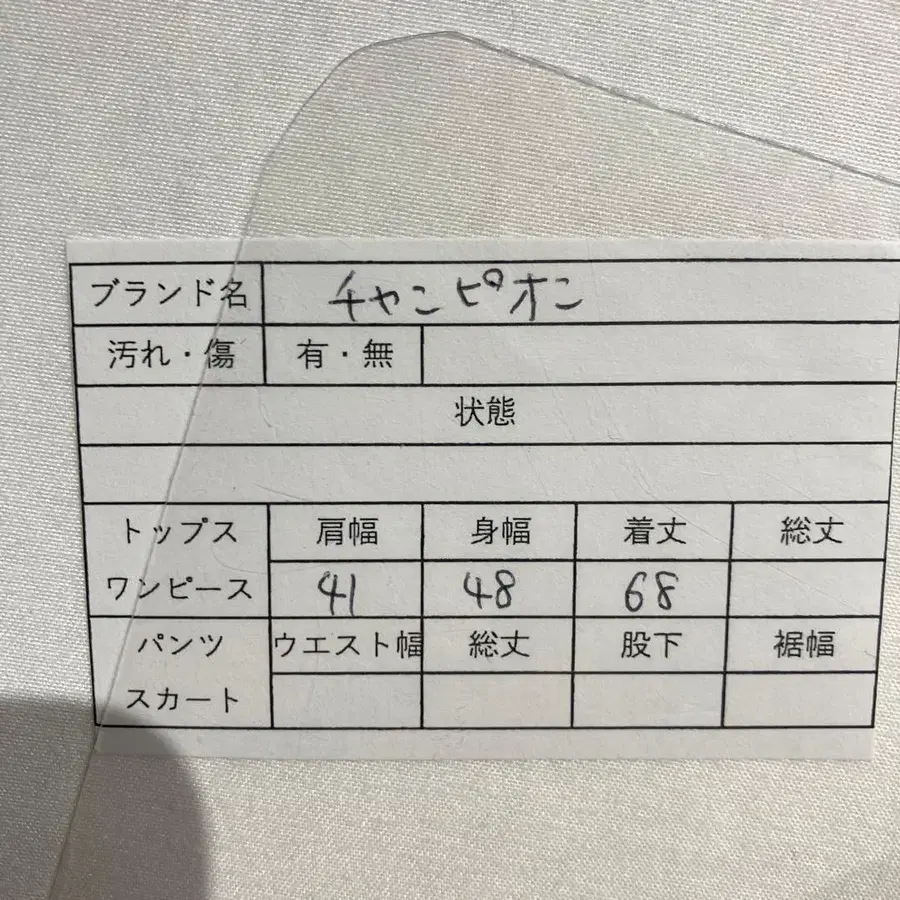 ブランド名 チャンピオン
汚れ・傷 有・無
状態
トップス 肩幅 身幅 着丈 総丈
ワンピース 41 48 68
パンツ ウエスト幅 総丈 股下 裾幅
スカート